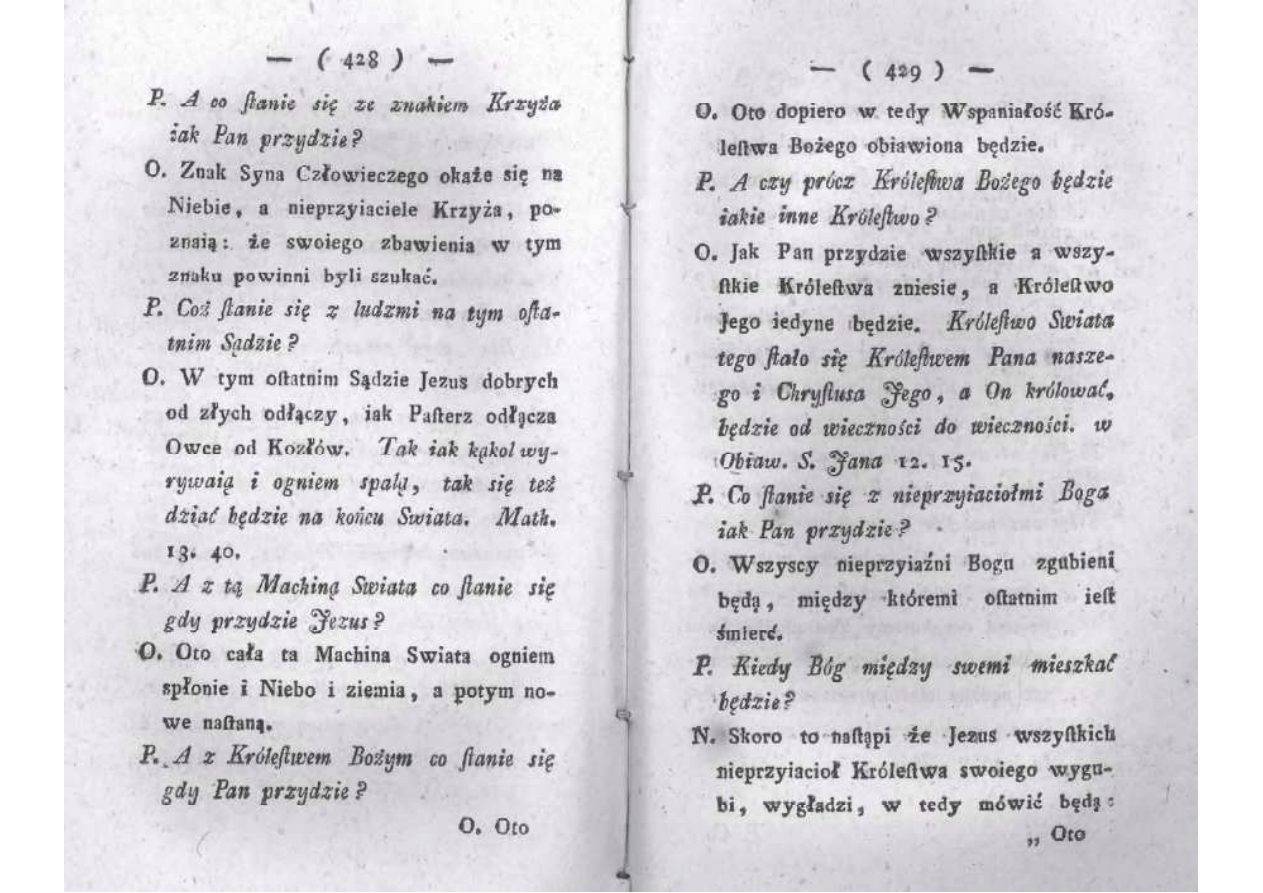 — ( 428 ) —
P. A co ſtanie się ze znakiem Krzyża
iak Pan przydzie?
O. Znak Syna Człowieczego okaże się na
Niebie, a nieprzyiaciele Krzyża, po-
znaią: że swoiego zbawienia w tym
znaku powinni byli szukać.
P. Coż ſtanie się z ludzmi na tym oſta-
tnim Sądzie?
O. W tym oſtatnim Sądzie Jezus dobrych
od złych odłączy, iak Paſterz odłącza
Owce od Kozłów. Tak iak kąkol wy-
rywaią i ogniem spalą, tak się też
dziać będzie na końcu Swiata. Math.
13. 40.
P. A z tą Machiną Swiata co ſtanie się
gdy przydzie Jezus?
O. Oto cała ta Machina Swiata ogniem
spłonie i Niebo i ziemia, a potym no-
we naſtaną.
P. A z Króleſtwem Bożym co ſtanie się
gdy Pan przydzie?
O. Oto
— ( 429 ) —
O. Oto dopiero w tedy Wspaniałość Kró-
leſtwa Bożego obiawiona będzie.
P. A czy prócz Króleſtwa Bożego będzie
iakie inne Króleſtwo?
O. Jak Pan przydzie wszyſtkie a wszy-
ſtkie Króleſtwa zniesie, a Króleſtwo
Jego iedyne będzie. Króleſtwo Swiata
tego ſtało się Króleſtwem Pana nasze-
go i Chryſtusa Jego, a On królować,
będzie od wieczności do wieczności. w
Obiaw. S. Jana 12. 15.
P. Co ſtanie się z nieprzyiaciołmi Boga
iak Pan przydzie?
O. Wszyscy nieprzyiaźni Bogu zgubieni
będą, między któremi oſtatnim ieſt
śmierć.
P. Kiedy Bóg między swemi mieszkać
będzie?
N. Skoro to naſtąpi że Jezus wszyſtkich
nieprzyiacioł Króleſtwa swoiego wygu-
bi, wygładzi, w tedy mówić będą:
„ Oto